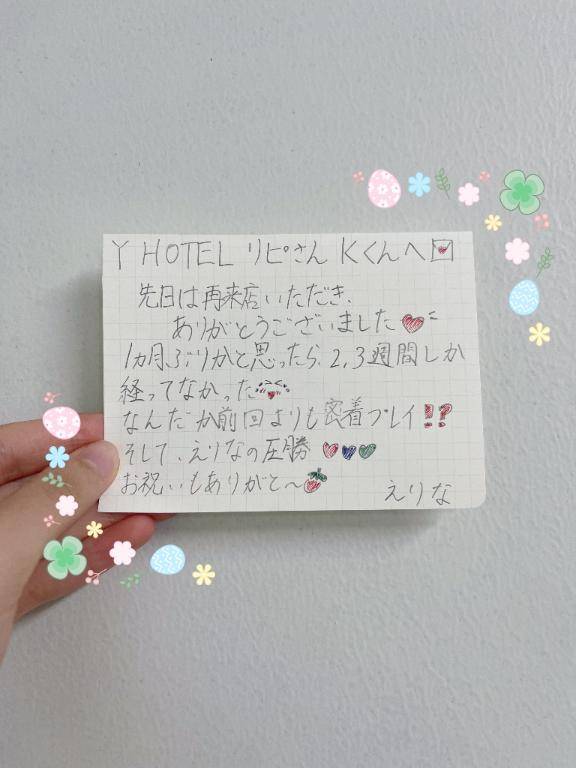 Y HOTEL リピさん Kくんへ💌
先日は再来店いただき、
ありがとうございました❤
1ヵ月ぶりかと思ったら、2,3週間しか
経ってなかった
なんだか前回よりも密着プレイ!?
そして、えりなの圧勝 ❤💙💚
お祝いもありがと〜🍓
えりな